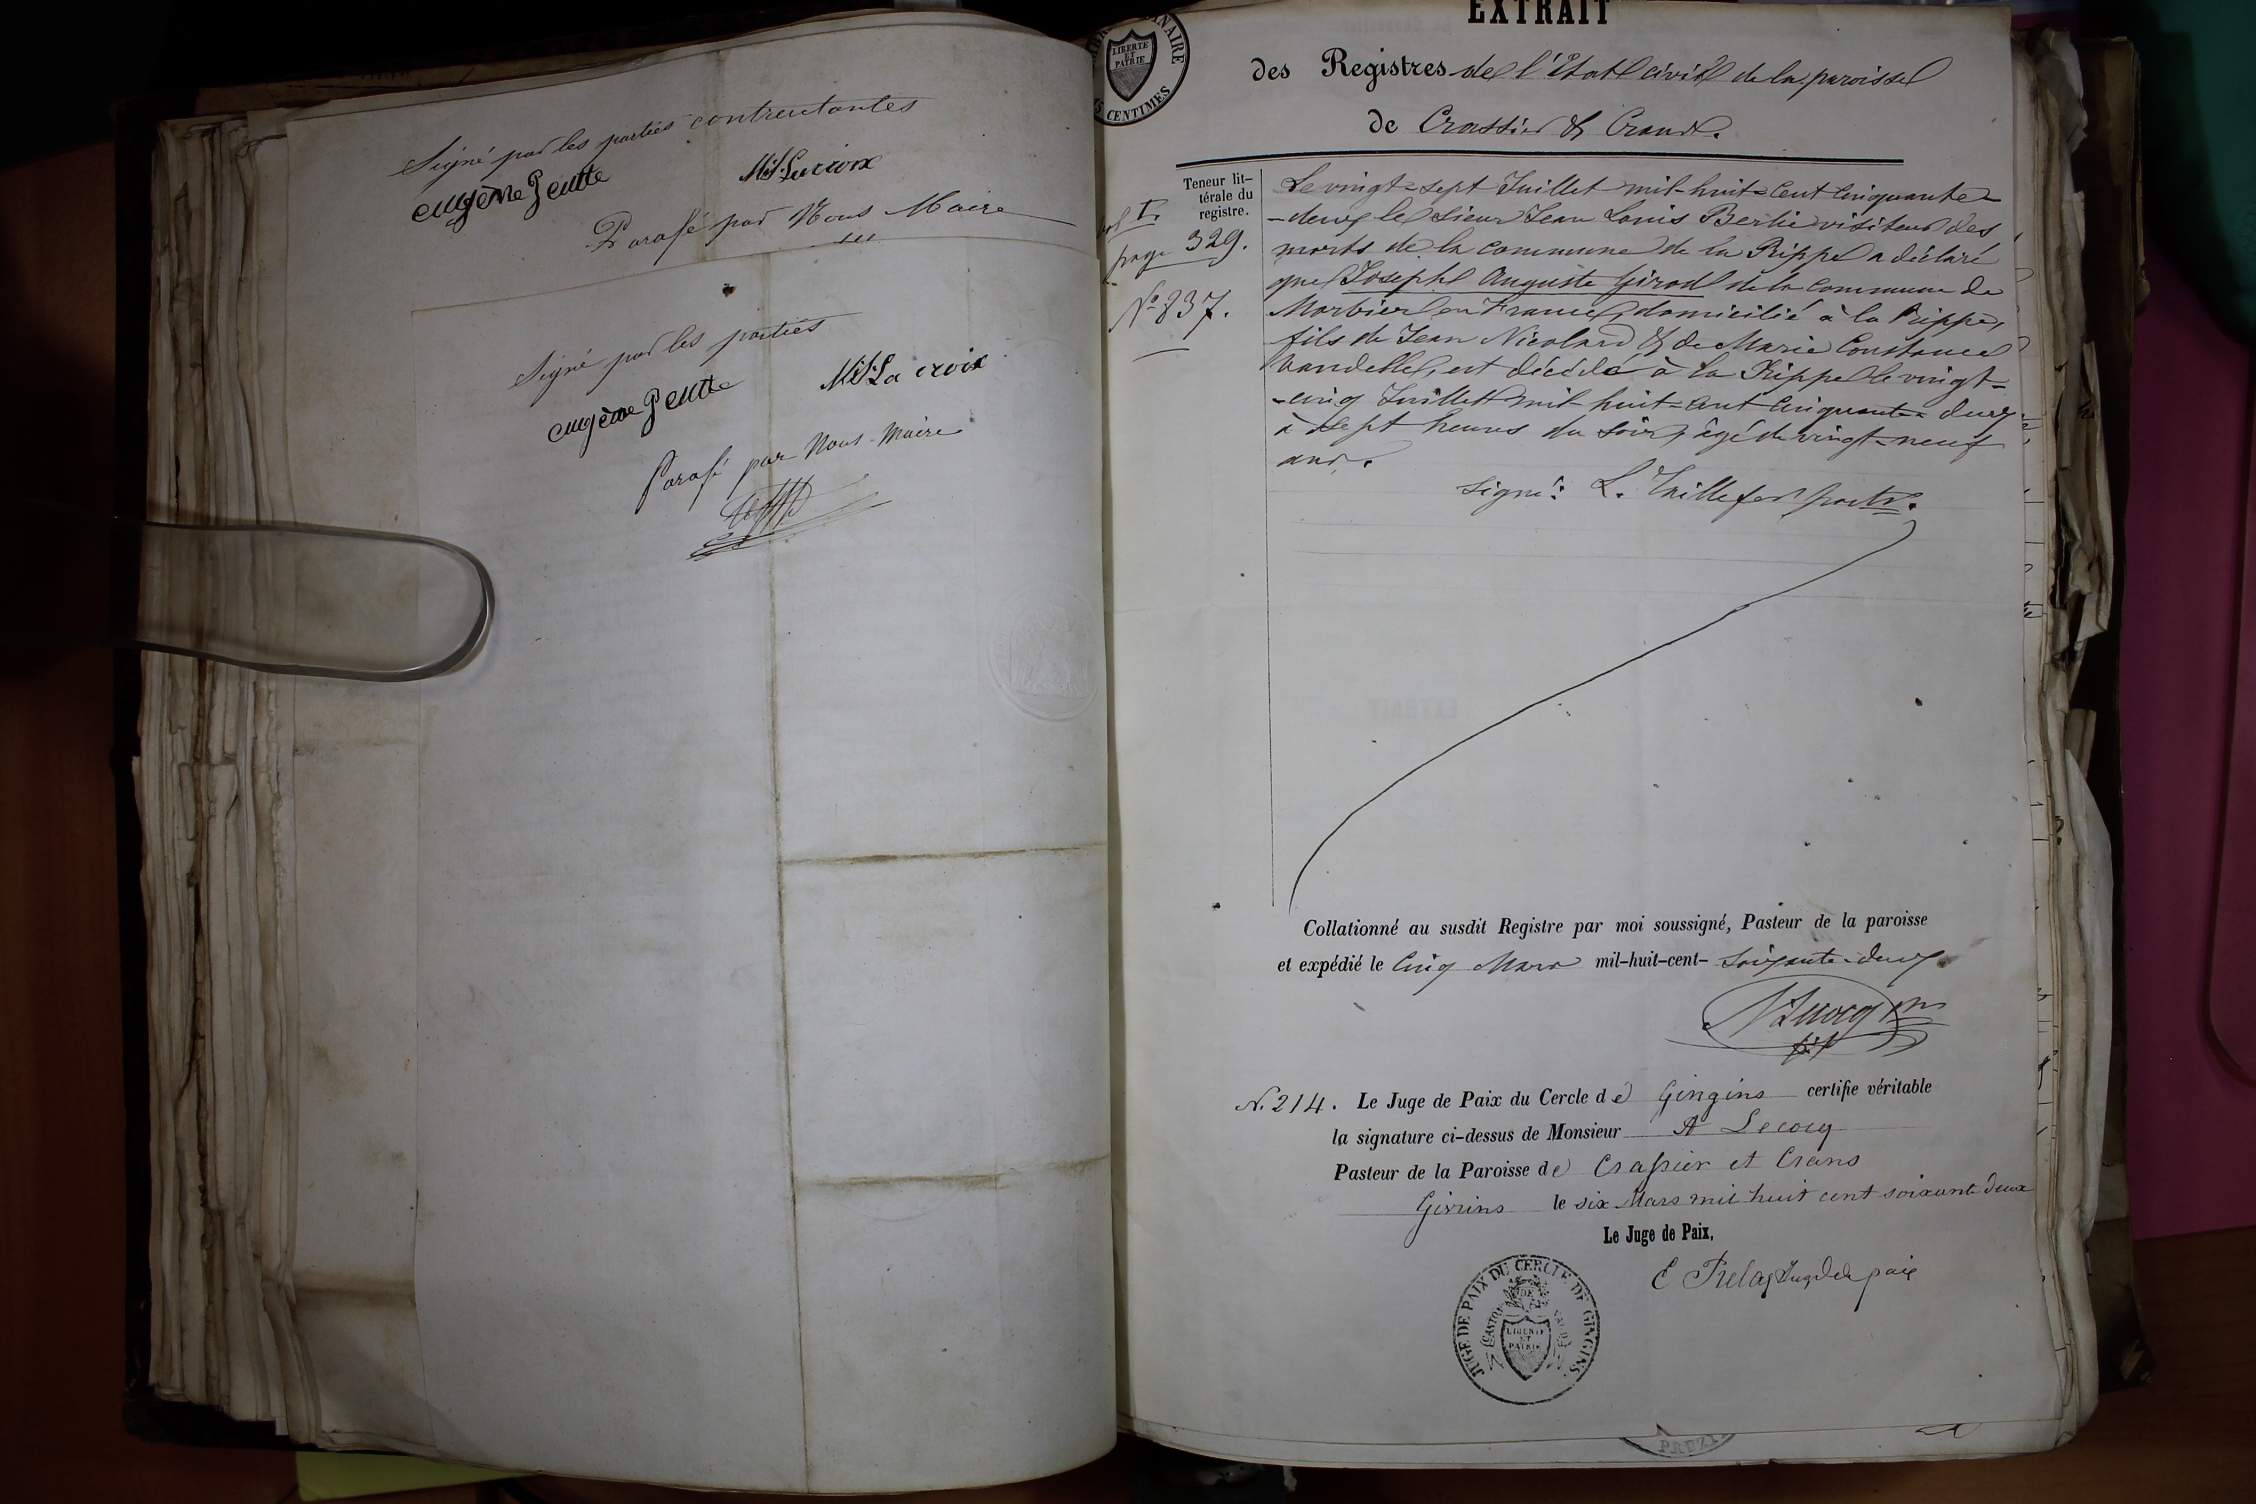 Signé par les parties contractantes
eugène Gentte
M.J. Lacroix
Parafé par Nous Maire
Signé par les parties
eugène Gentte
M.J. Lacroix
Parafé par Nous Maire
LIBERTE
ET
PATRIE
CENTIMES
EXTRAIT
des Registres de l'état civil de la paroisse
de Crassier & Crans.
Teneur lit-
térale du
registre.
Vol I.
page 329.
No 837.
Le vingt-sept Juillet mil-huit-cent cinquante-
-deux le sieur Jean Louis Berlie visiteur des
morts de la commune de la Rippe a déclaré
que Joseph Auguste Girod de la commune de
Morbier en France, domicilié à la Rippe,
fils de Jean Nicolard & de Marie Constance
Vandelle, est décédé à la Rippe le vingt-
-cinq Juillet mil-huit-cent cinquante-deux
à sept heures du soir, âgé de vingt-neuf
ans.
signé: L. Taillefer past.
Collationné au susdit Registre par moi soussigné, Pasteur de la paroisse
et expédié le Cinq Mars mil-huit-cent-soixante-deux
A Lecocq
N. 214. Le Juge de Paix du Cercle de Gingins certifie véritable
la signature ci-dessus de Monsieur A Lecocq
Pasteur de la Paroisse de Crassier et Crans
Givrins le six Mars mil huit cent soixante deux
Le Juge de Paix,
Juge de paix
JUGE DE PAIX DU CERCLE DE GINGINS.
CANTON DE VAUD
LIBERTE
ET
PATRIE